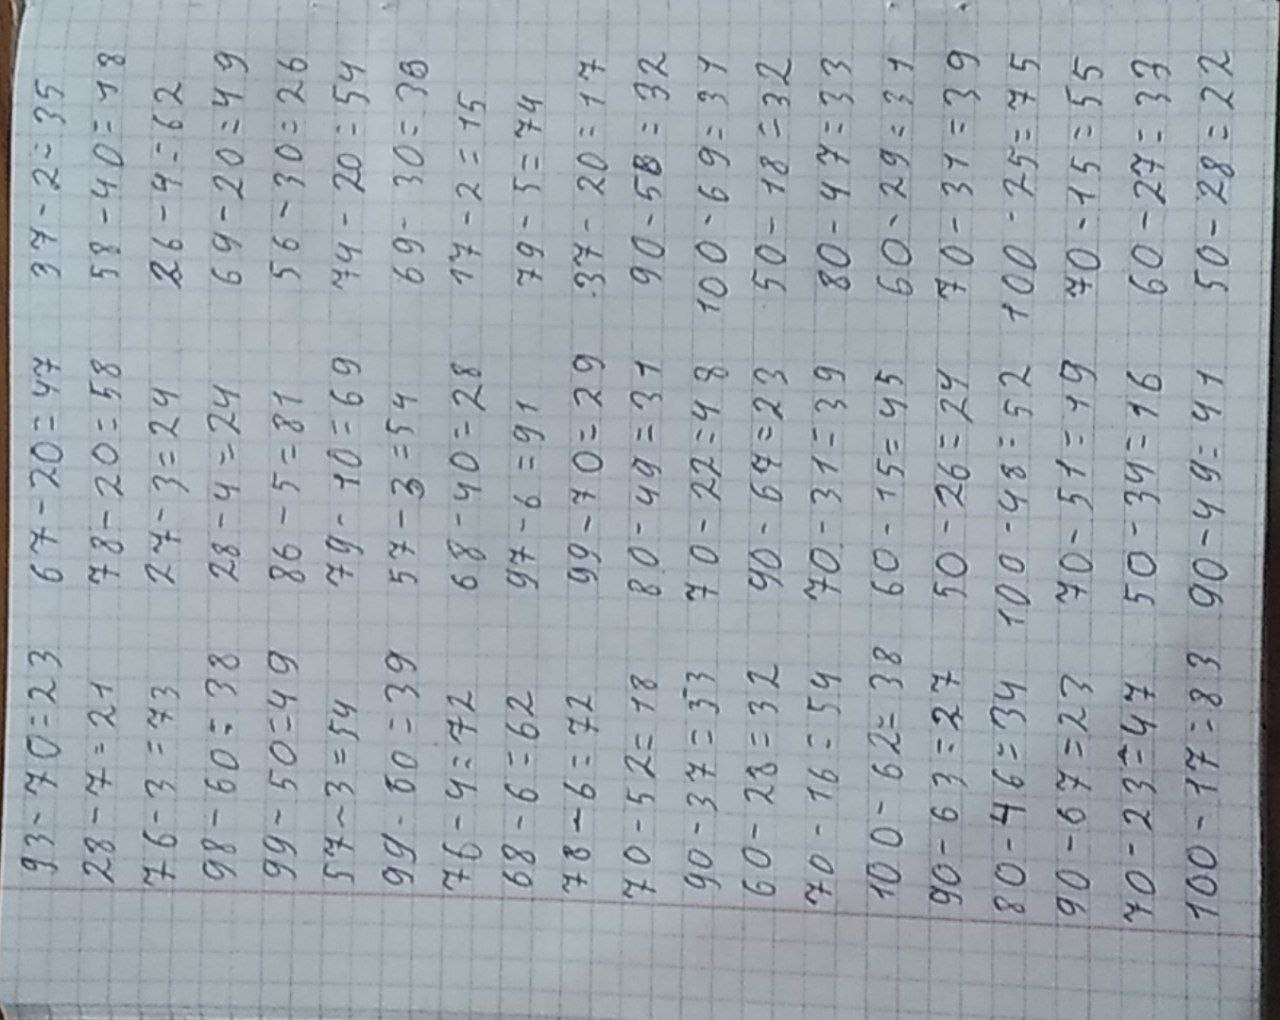 93-70=23 67-20=47 37-2=35
28-7=21 78-20=58 58-40=18
76-3=73 27-3=24 26-4=62
98-60=38 28-4=24 69-20=49
99-50=49 86-5=81 56-30=26
57-3=54 79-10=69 74-20=54
99-60=39 57-3=54 69-30=39
76-4=72 68-40=28 17-2=15
68-6=62 97-6=91 79-5=74
78-6=72 99-70=29 37-20=17
70-52=18 80-49=31 90-58=32
90-37=53 70-22=48 100-69=31
60-28=32 90-67=23 50-18=32
70-16=54 70-31=39 80-47=33
100-62=38 60-15=45 60-29=31
90-63=27 50-26=24 70-31=39
80-46=34 100-48=52 100-25=75
90-67=23 70-51=19 70-15=55
70-23=47 50-34=16 60-27=33
100-17=83 90-49=41 50-28=22